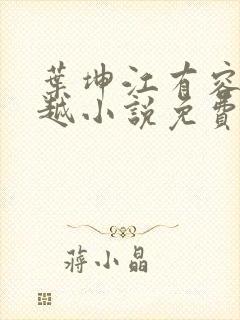 葉坤江有容
越小說免費
蔣小晶